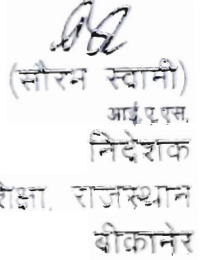 (सौरभ स्वामी)
आई.ए.एस.
निदेशक
शिक्षा, राजस्थान
बीकानेर